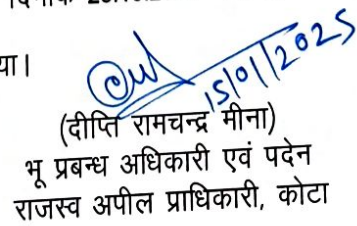 या।
15/01/2025
(दीप्ति रामचन्द्र मीना)
भू प्रबन्ध अधिकारी एवं पदेन
राजस्व अपील प्राधिकारी, कोटा